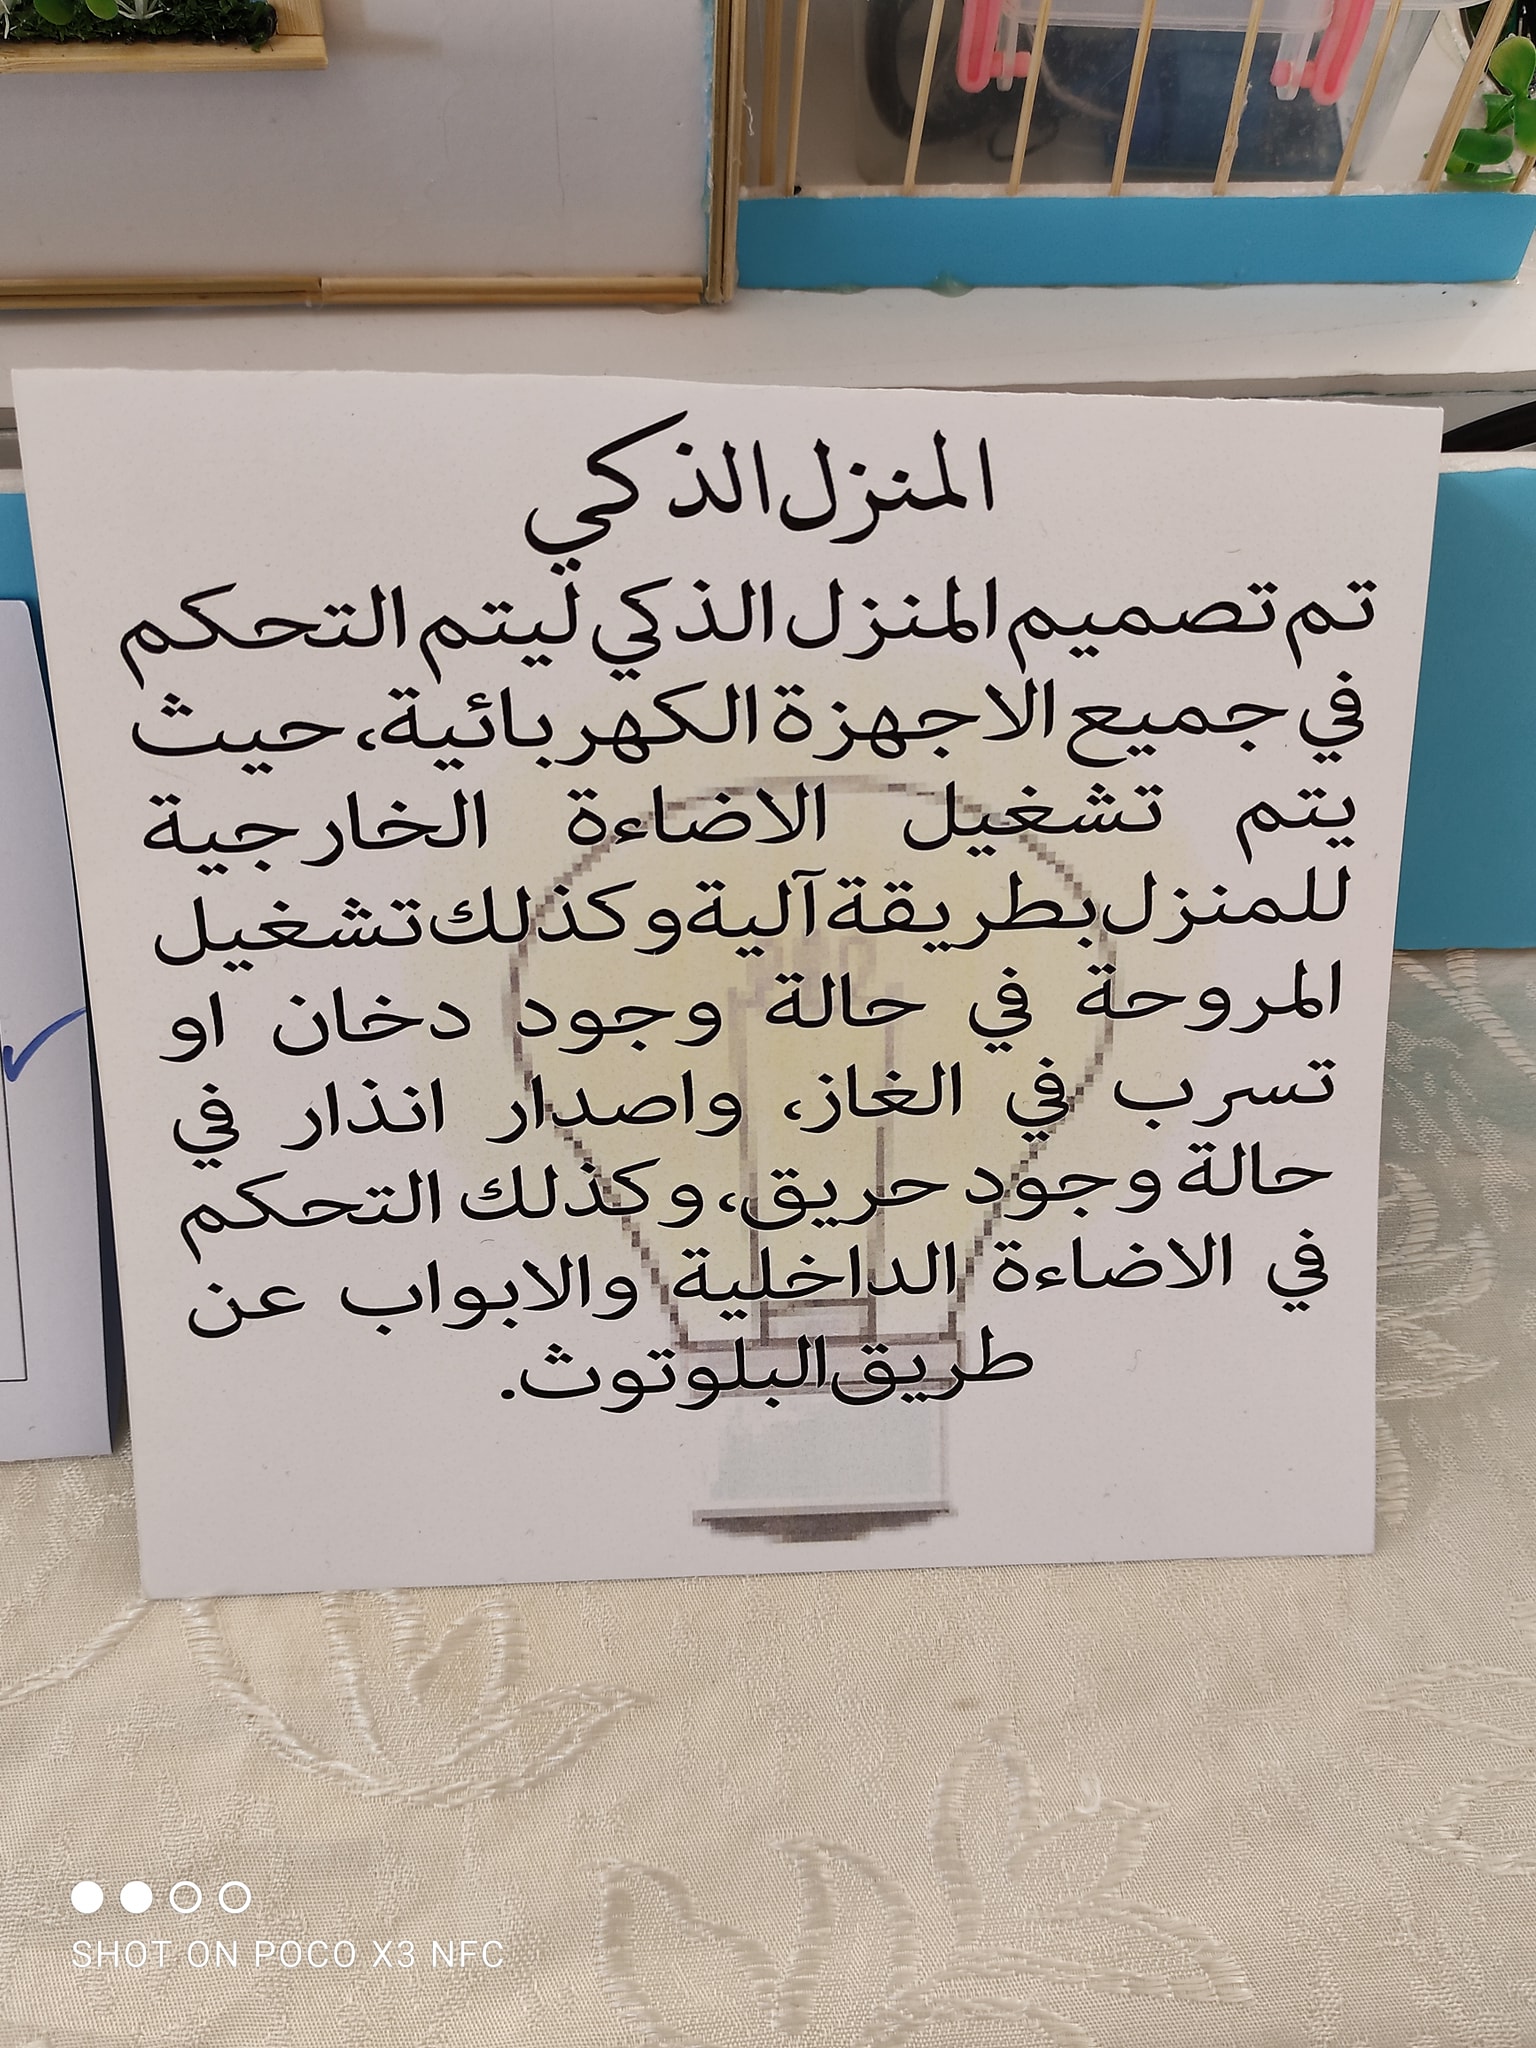 المنزل الذكي
تم تصميم المنزل الذكي ليتم التحكم
في جميع الاجهزة الكهربائية، حيث
يتم تشغيل الاضاءة الخارجية
للمنزل بطريقة آلية وكذلك تشغيل
المروحة في حالة وجود دخان او
تسرب في الغاز، واصدار انذار في
حالة وجود حريق، وكذلك التحكم
في الاضاءة الداخلية والابواب عن
طريق البلوتوث.
SHOT ON POCO X3 NFC